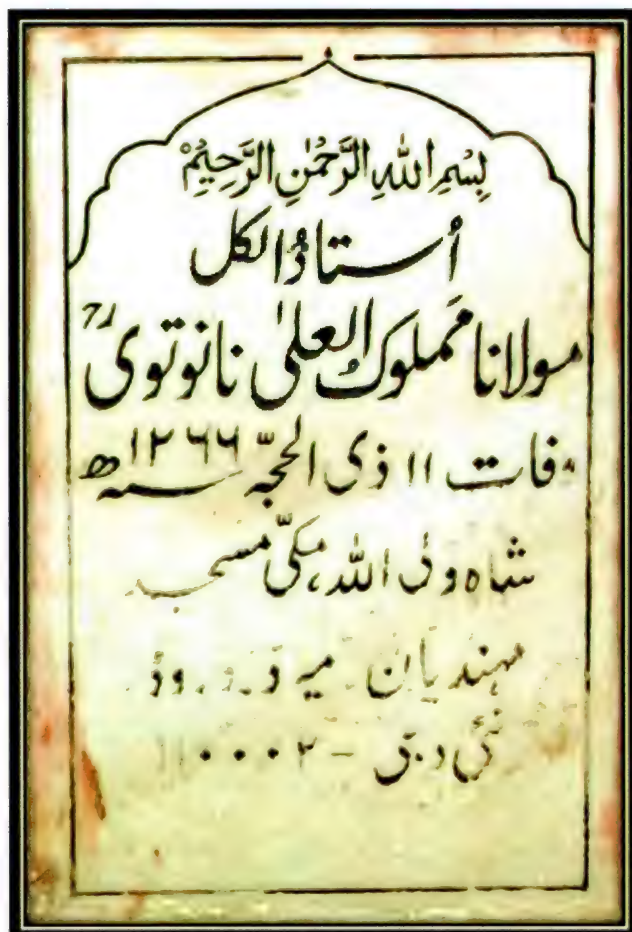 بِسْمِ اللہِ الرَّحْمٰنِ الرَّحِیْمِ
اُستاذُ الکل
مولانا مَملوکُ العلیٰ نانوتوی رح
وفات ۱۱ ذی الحجّہ سنہ ۱۲۶۶ھ
شاہ ولی اللہ، مکّی مسجد
مہندیان۔ میر درد روڈ
نئی دہلی - ۱۱۰۰۰۲